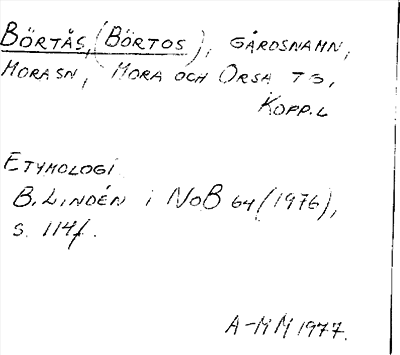 BÖRTÅS, (BÖRTOS), GÅRDSNAMN,
MORA SN, MORA OCH ORSA TS,
KOPP.L
ETYMOLOGI
B. LINDÉN i NoB 64 (1976),
s. 114f.
A-MM 1977.